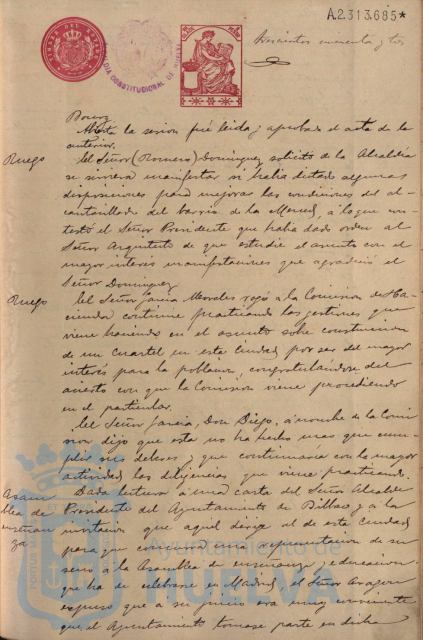 A.2.313.685*
Trescientos cuarenta y tres
ALCALDIA CONSTITUCIONAL DE HUELVA
Bravo
Abierta la sesion fué leida y aprobada el acta de la
anterior.
Ruego
El Señor (Romero) Dominguez solicitó de la Alcaldia
se sirviera manifestar si habia dictado algunas
disposiciones para mejorar las condiciones del al-
cantarillado del barrio de la Merced, á lo que con-
testó el Señor Presidente que habia dado orden al
Señor Arquitecto de que estudie el asunto con el
mayor interés manifestaciones que agradeció el
Señor Dominguez
Ruego
El Señor Garcia Morales rogó a la Comision de Ha-
cienda continue practicando las gestiones que
viene haciendo en el asunto sobre construccion
de un Cuartel en esta Ciudad por ser del mayor
interés para la poblacion, congratulandose del
acierto con que la Comision viene procediendo
en el particular.
El Señor Garcia, Don Diego, á nombre de la Comi
sion dijo que esta no ha hecho mas que cum-
plir sus deberes y que continuaria con la mayor
actividad las diligencias que viene practicando.
Asam
blea de
enseñan
za
Dada lectura á una carta del Señor Alcalde
Presidente del Ayuntamiento de Bilbao y á la
invitacion que aquel dirige al de esta Ciudad
para que concurra una representacion de su
seno á la Asamblea de enseñanza y educacion
que ha de celebrarse en Madrid, el Señor Aragon
expuso que a su juicio era muy conveniente
que el Ayuntamiento tomase parte en dicha
Ayuntamiento de
HUELVA